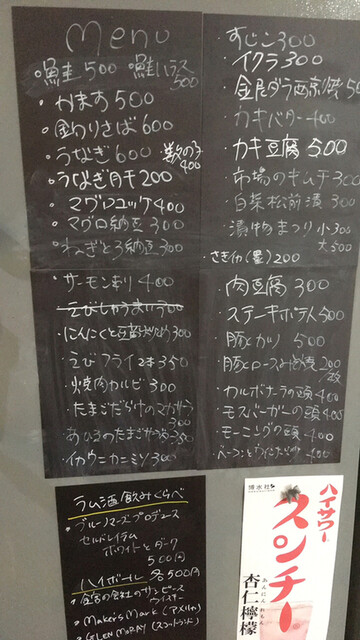 menu
・鮭 500 鮭ハラス 500
・かます 500
・金めりさば 600
・うなぎ 600 数の子 400
・うなぎ肝 200
・マグロユッケ 400
・マグロ納豆 300
・ねぎとろ納豆 300
・サーモン刺り 400
・えびしゅうまい 300
・にんにくと豆腐 300
・えびフライ 2本 350
・焼肉カルビ 300
・たまごだらけのマカサラ 300
・あひるのたまご 300
・イカウニカニミソ 300
・すじこ 300
・イクラ 300
・金目ダラ西京焼
・カキバター 400
・カキ豆腐 500
・市場のキムチ 300
・白菜松前漬 300
・漬物まつり 小 300
大 500
・さきイカ(墨) 200
・肉豆腐 300
・ステーキポテト 500
・豚ヒカツ 500
・豚ヒロースみそ焼 200/枚
・カルボナーラの頭 400
・モスバーガーの頭 400
・モーニングの頭 400
・ベーコンとうずら 400
ラム酒 飲みくらべ
・ブルーノマーズプロデュース
セルバレイ ラム
ホワイトとダーク
500円
ハイボール 各500円
・倉吉の会社のサンピース
ウイスキー
・Makers Mark (アメリカ)
・GLEN MORAY (スコットランド)
博水社
ハイサワー
スンチー
あんにんれもん
杏仁檸檬